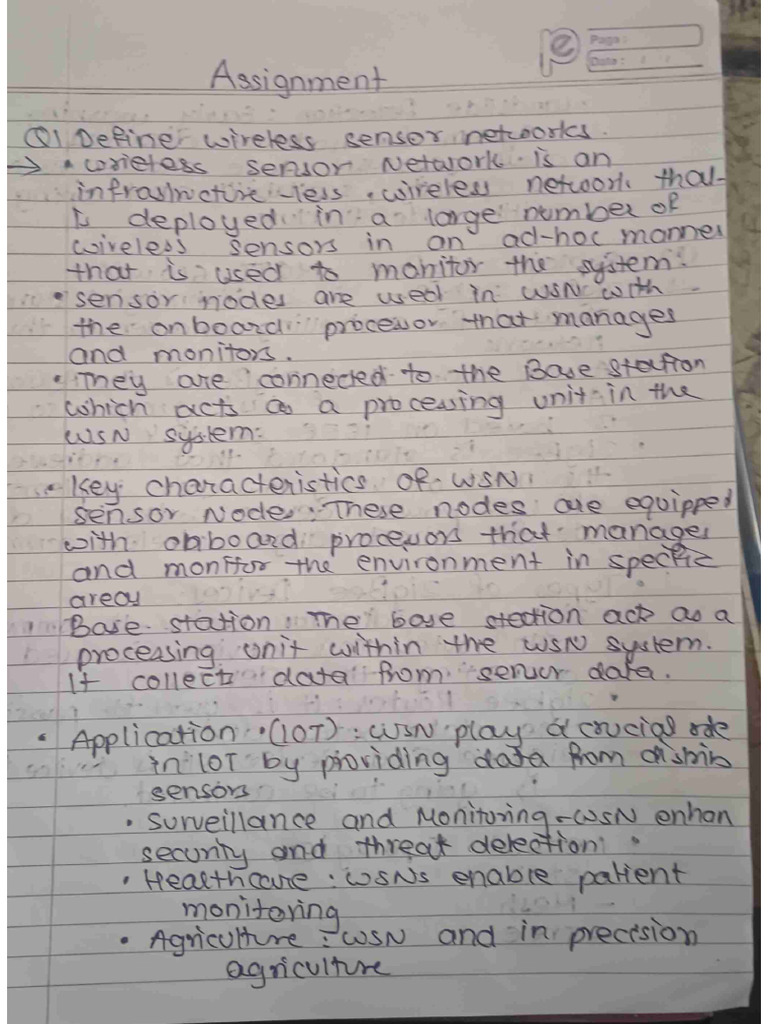 Page:
Date:
Assignment
Q1 Define wireless sensor networks.
→ • wireless sensor Network is an
infrastructure-less wireless network that
is deployed in a large number of
wireless sensors in an ad-hoc manner
that is used to monitor the system.
• sensor nodes are used in WSN with
the onboard processor that manages
and monitors.
• They are connected to the Base Station
which acts as a processing unit in the
WSN system.
• Key characteristics of WSN:
sensor Node: These nodes are equipped
with onboard processors that manages
and monitor the environment in specific
areas
Base station: The base station act as a
processing unit within the WSN system.
It collects data from sensor data.
• Application (IOT): WSN play a crucial role
in IOT by providing data from distrib
sensors
• Surveillance and Monitoring-WSN enhan
security and threat detection
• Healthcare: WSNs enable patient
monitoring
• Agriculture: WSN and in precision
agriculture